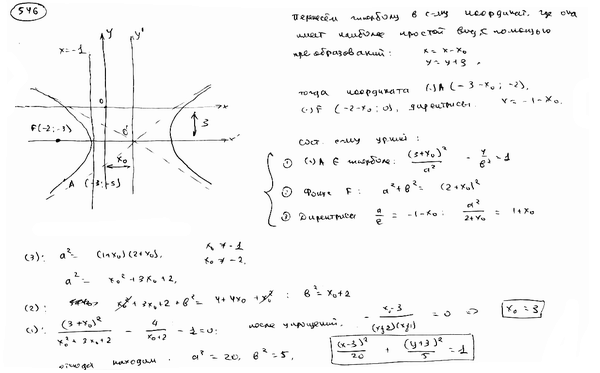 546
Перенесём гиперболу в с-му координат, где она
имеет наиболее простой вид, с помощью
преобразований: x = x - x₀
y = y + 3,
y
y'
x = -1
0
x
3
F(-2; -3)
0'
x'
x₀
A (-3; -5)
тогда координата (·) A (-3 - x₀; -2),
(·) F (-2 - x₀; 0), директрисы x = -1 - x₀.
сост. с-му ур-ний:
① (·) A ∈ гиперболе: (3+x₀)²/a² - 4/b² = 1
② Фокус F: a² + b² = (2+x₀)²
③ Директриса a/ε = -1 - x₀: a²/(2+x₀) = 1 + x₀
(3): a² = (1+x₀)(2+x₀), x₀ ≠ -1
x₀ ≠ -2.
a² = x₀² + 3x₀ + 2,
(2): x₀² + 3x₀ + 2 + b² = 4 + 4x₀ + x₀²: b² = x₀ + 2
(1): (3+x₀)²/(x₀²+3x₀+2) - 4/(x₀+2) - 1 = 0: после упрощений, - (x₀-3)/((x₀+2)(x₀+1)) = 0 => x₀ = 3
отсюда находим: a² = 20, b² = 5, (x-3)²/20 + (y+3)²/5 = 1